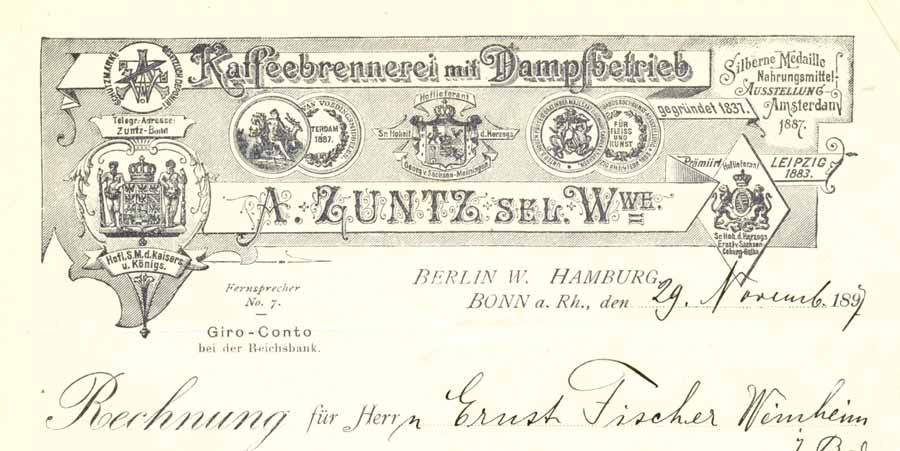 SCHUTZMARKE
GESETZLICH DEPONIRT
Kaffeebrennerei mit Dampfbetrieb
Silberne Medaille
Nahrungsmittel-
AUSSTELLUNG
Amsterdam
1887.
Telegr.-Adresse:
Zuntz-Bonn
TERDAM
1887.
Hoflieferant
Sr. Hoheit d. Herzogs
Georg v. Sachsen-Meiningen
FÜR
FLEISS
UND
KUNST
gegründet 1837.
Prämiirt LEIPZIG
1883.
Hoflieferant
Sr. Hoh. d. Herzogs
Ernst v. Sachsen
Coburg-Gotha
A. ZUNTZ SEL. WWE.
Hofl. S. M. d. Kaisers
u. Königs.
Fernsprecher
No. 7.
Giro-Conto
bei der Reichsbank.
BERLIN W. HAMBURG,
BONN a. Rh., den 29. Novemb. 1897
Rechnung für Herrn Ernst Fischer Weinheim